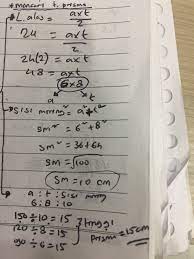 * mencari t. prisma
L. alas = axt
2
24 = axt
2
24(2) = axt
48 = axt
6x8
a t
Sisi miring² = a² + t²
sm² = 6² + 8²
sm² = 36 + 64
sm = √100
sm = 10 cm
a : t : sisi miring
6 : 8 : 10
150 ÷ 10 = 15
120 ÷ 8 = 15
90 ÷ 6 = 15
tinggi
prisma = 15cm